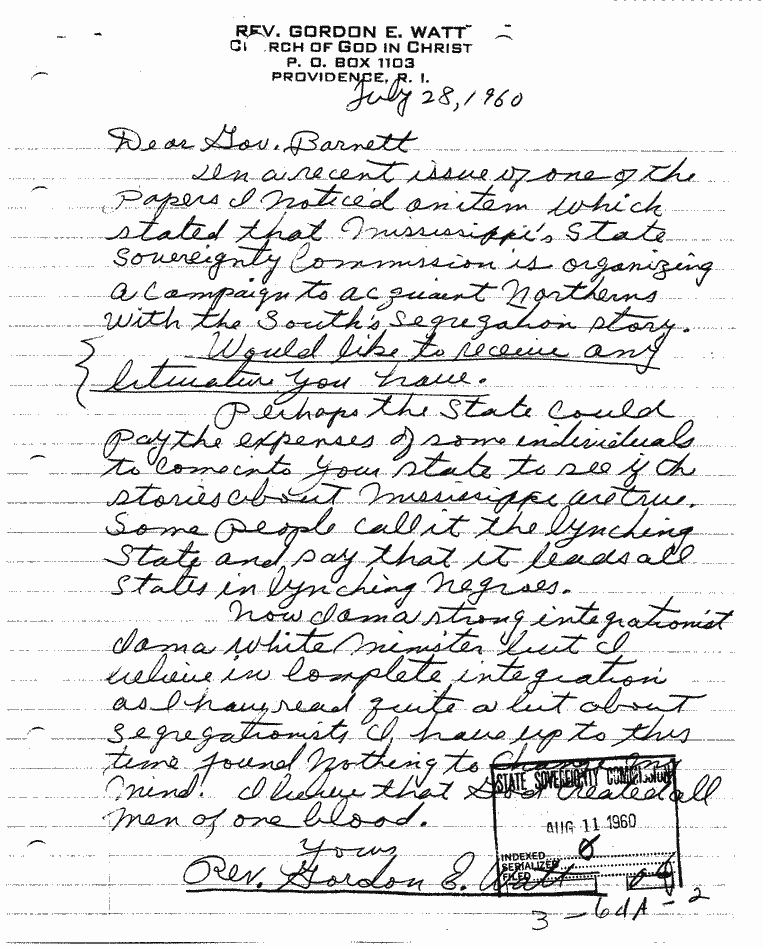 REV. GORDON E. WATT
CHURCH OF GOD IN CHRIST
P. O. BOX 1103
PROVIDENCE, R. I.
July 28, 1960
Dear Gov. Barnett
In a recent issue of one of the
Papers I noticed an item which
stated that Mississippi's State
Sovereignty Commission is organizing
a campaign to acquaint Northerns
with the South's segregation story.
Would like to receive any
literature you have.
Perhaps the State could
pay the expenses of some individuals
to come into your state to see if the
stories about Mississippi are true.
Some people call it the lynching
State and say that it leads all
States in lynching Negroes.
Now I am a strong integrationist
I am a white minister but I
believe in complete integration
as I have read quite a bit about
segregationists I have up to this
time found nothing to change my
mind. I believe that God created all
men of one blood.
Yours
Rev. Gordon E. Watt
STATE SOVEREIGNTY COMMISSION
AUG 11 1960
INDEXED
SERIALIZED
FILED
3-64A-2